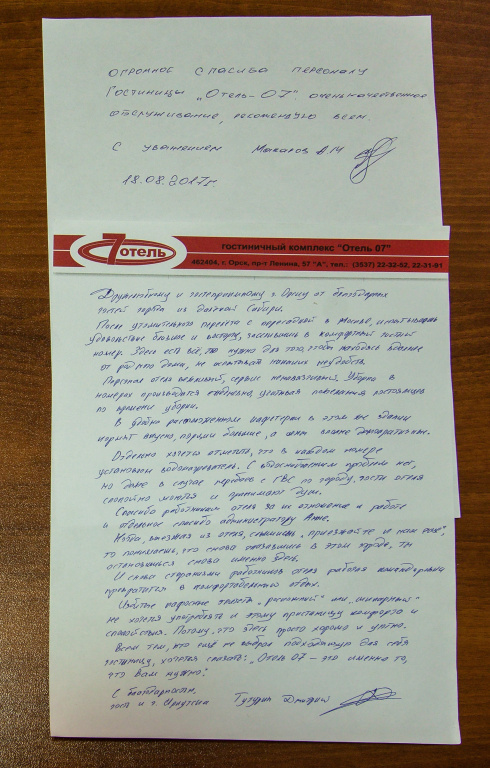 ОГРОМНОЕ СПАСИБА ПЕРСОНАЛУ
ГОСТИНИЦЫ „ОТЕЛЬ-07" ОЧЕНЬ КАЧЕСТВЕННОЕ
ОБСЛУЖИВАНИЕ, РЕКОМЕНДУЮ ВСЕМ.
С УВАЖЕНИЕМ Макаров А.М
18.08.2017г.
7 отель
гостиничный комплекс "Отель 07"
462404, г. Орск, пр-т Ленина, 57 "А", тел.: (3537) 22-32-52, 22-31-91
Дружелюбному и гостеприимному г. Орску от благодарных
гостей города из далёкой Сибири.
После утомительного перелёта с пересадкой в Москве, испытываешь
удовольствие большое и восторг, заселившись в комфортный чистый
номер. Здесь есть всё, что нужно для того, чтобы находясь вдалеке
от родного дома, не испытывая никаких неудобств.
Персонал отеля вежливый, сервис ненавязчивый. Уборка в
номерах производится ежедневно, учитывая пожелания постояльцев
по времени уборки.
В удобно расположенном кафетерии в этом же здании
кормят вкусно, порции большие, а цены вполне демократичные.
Отдельно хочется отметить, что в каждом номере
установлен водонагреватель. С водоснабжением проблем нет,
но даже в случае перебоев с ГВС по городу, гости отеля
спокойно моются и принимают душ.
Спасибо работникам отеля за их отношение к работе
и отдельное спасибо администратору Анне.
Когда, выезжая из отеля, слышишь „приезжайте к нам ещё",
то понимаешь, что снова оказавшись в этом городе, ты
остановишься снова именно здесь.
И снова стараниями работников отеля рабочая командировка
превратится в комфортабельный отдых.
Избитые пафосные эпитеты „роскошный" или „шикарный"
не хочется употреблять к этому пристанищу комфорта и
спокойствия. Потому, что здесь просто хорошо и уютно.
Всем тем, кто ещё не выбрал подходящую для себя
гостиницу, хочется сказать: „Отель 07 – это именно то,
что вам нужно".
С благодарностью,
гость из г. Иркутска Тутурин Дмитрий